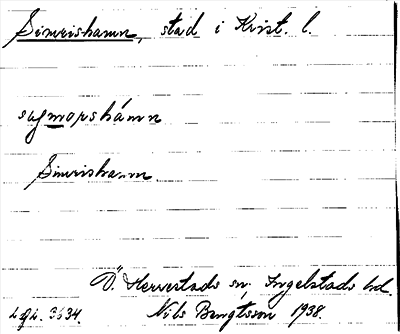 Simrishamn, stad i Krist. l.
sagmorshámn
Simrishamn.
Ö. Herrestads sn. Ingelstads hd.
Nils Bengtsson 1938.